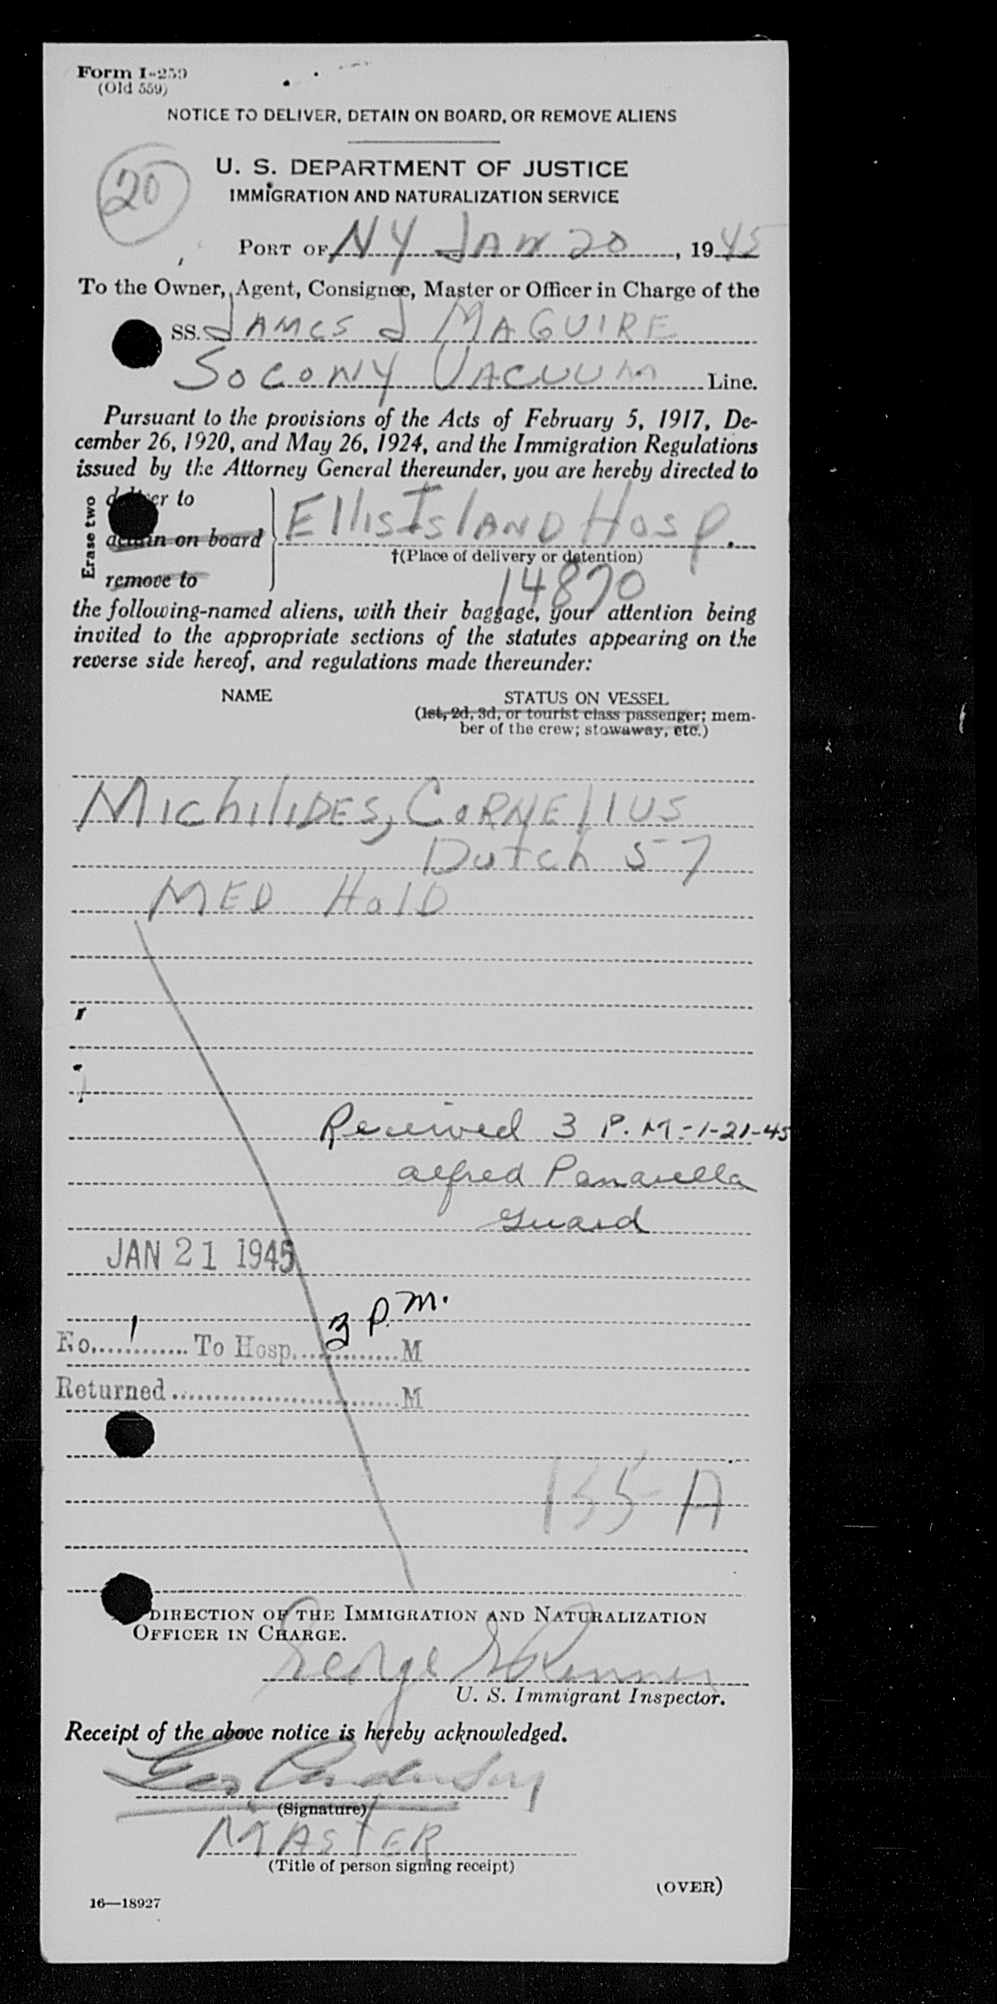 Form I-259
(Old 559)
NOTICE TO DELIVER, DETAIN ON BOARD, OR REMOVE ALIENS
20
U. S. DEPARTMENT OF JUSTICE
IMMIGRATION AND NATURALIZATION SERVICE
PORT OF NY JAN 20, 1945
To the Owner, Agent, Consignee, Master or Officer in Charge of the
SS. JAMES J MAGUIRE
SOCONY VACUUM Line.
Pursuant to the provisions of the Acts of February 5, 1917, De-
cember 26, 1920, and May 26, 1924, and the Immigration Regulations
issued by the Attorney General thereunder, you are hereby directed to
Erase two
deliver to
detain on board
remove to
Ellis Island Hosp.
†(Place of delivery or detention)
14870
the following-named aliens, with their baggage, your attention being
invited to the appropriate sections of the statutes appearing on the
reverse side hereof, and regulations made thereunder:
NAME STATUS ON VESSEL
(1st, 2d, 3d, or tourist class passenger; mem-
ber of the crew; stowaway, etc.)
MichiliDES, CORNElIUS
Dutch 57
MED HolD
Received 3 P.M.-1-21-45
Alfred Panarella
Guard
JAN 21 1945
No. 1 To Hosp. 3 P.M. M
Returned M
155-A
DIRECTION OF THE IMMIGRATION AND NATURALIZATION
OFFICER IN CHARGE.
George
U. S. Immigrant Inspector.
Receipt of the above notice is hereby acknowledged.
(Signature)
MASTER
(Title of person signing receipt)
(OVER)
16—18927